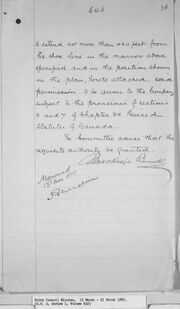 to extend not more than 440 feet from
the shore line in the manner above
specified and in the positions shown
on the plan, hereto attached, and
permission to be given to the Company
subject to the provisions of sections
5 and 7 of Chapter 92, Revised
Statutes of Canada.
The Committee advise that the
requisite authority be granted.
Mackenzie Bowell
Approved
Aberdeen
Privy Council Minutes, 13 March - 21 March 1895.
(R.G. 2, Series 1, Volume 632)